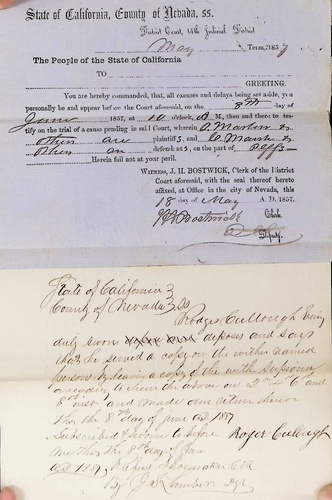 State of California, County of Nevada, ss.
District Court, 14th Judicial District
May Term, 1857
The People of the State of California
TO
GREETING.
You are hereby commanded, that, all excuses and delays being set aside, ye
personally be and appear before the Court aforesaid, on the 8th day of
June 1857, at 10 o'clock, A M., then and there to
testify on the trial of a cause pending in said Court, wherein
others are plaintiff s, and
others are defendant s, on the part of Deffs
Herein fail not at your peril.
WITNESS, J. H. BOSTWICK, Clerk of the District
Court aforesaid, with the seal thereof hereto
affixed, at Office in the city of Nevada, this
18 day of May A. D. 1857.
J H Bostwick Clerk
Deputy.
State of California
County of Nevada ss
Rodger Cullough being
duly sworn deposes and says
that he served a copy on the within named
persons by leaving a copy of the within subpoena
according to them the above on 2nd 4th 6 and
8th inst and made
this the 8th day of June AD 1857
Subscribed & sworn to before Roger Cullough
me this the 8th day of Jun
AD 1857, Rufus Shoemaker Clk
By